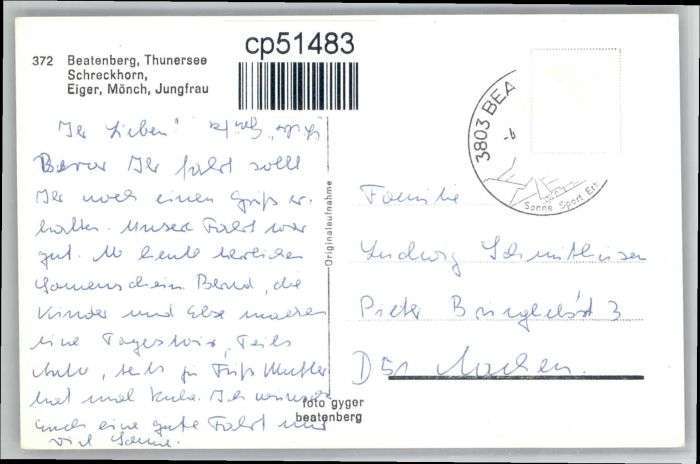 cp51483
372 Beatenberg, Thunersee
Schreckhorn,
Eiger, Mönch, Jungfrau
3803 BEA
Sonne Sport Erh
Ihr Lieben!
Bevor Ihr fahrt sollt
Ihr noch einen Gruß er-
halten. Unsere Fahrt war
gut. Ab heute herrlicher
Sonnenschein Bernd, die
Kinder und Else machen
eine Tagestour, Teils
Auto, teils zu Fuß Mutter
hat mal Ruhe. Ich wünsche
Euch eine gute Fahrt und
viel Sonne.
Originalaufnahme
foto gyger
beatenberg
Familie
Ludwig Schmithüsen
Pieter 3
D 51 Aachen.